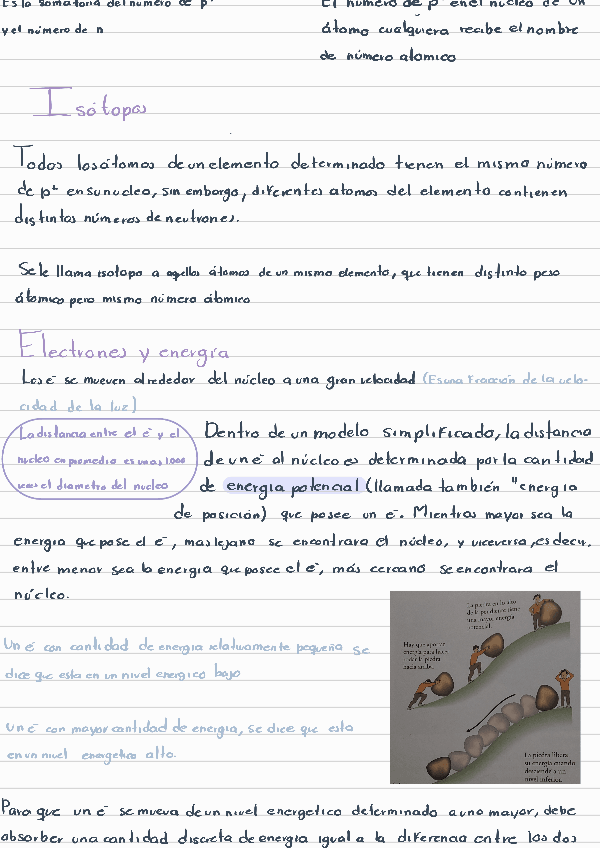 Es la somatoria del numero de p⁺
y el número de n
El número de p⁺ en el núcleo de un
átomo cualquiera recibe el nombre
de número atomico
Isótopos
Todos los átomos de un elemento determinado tienen el mismo número
de p⁺ en su nucleo, sin embargo, diferentes atomos del elemento contienen
distintos números de neutrones.
Se le llama isotopo a aquellos átomos de un mismo elemento, que tienen distinto peso
átomico pero mismo número átomico
Electrones y energía
Los e⁻ se mueven alrededor del núcleo a una gran velocidad (Es una fracción de la velo-
cidad de la luz)
La distancia entre el e⁻ y el
nucleo en promedio es unas 1000
veces el diametro del nucleo
Dentro de un modelo simplificado, la distancia
de un e⁻ al núcleo es determinada por la cantidad
de energia potencial (llamada también "energia
de posición) que posee un e⁻. Mientras mayor sea la
energia que pose el e⁻, mas lejano se encontrara el núcleo, y viceversa, es decir,
entre menor sea la energia que posee el e⁻, más cercano se encontrara el
núcleo.
Un e⁻ con cantidad de energia relativamente pequeña se
dice que esta en un nivel energico bajo
Un e⁻ con mayor cantidad de energia, se dice que esta
en un nivel energetico alto.
La piedra en lo alto
de la pendiente tiene
una mayor energía
potencial.
Hay que aportar
energía para llevar
rodar la piedra
hacia arriba.
La piedra libera
su energía cuando
desciende a un
nivel inferior.
Para que un e⁻ se mueva de un nivel energetico determinado a uno mayor, debe
absorber una cantidad discreta de energia igual a la diferencia entre los dos